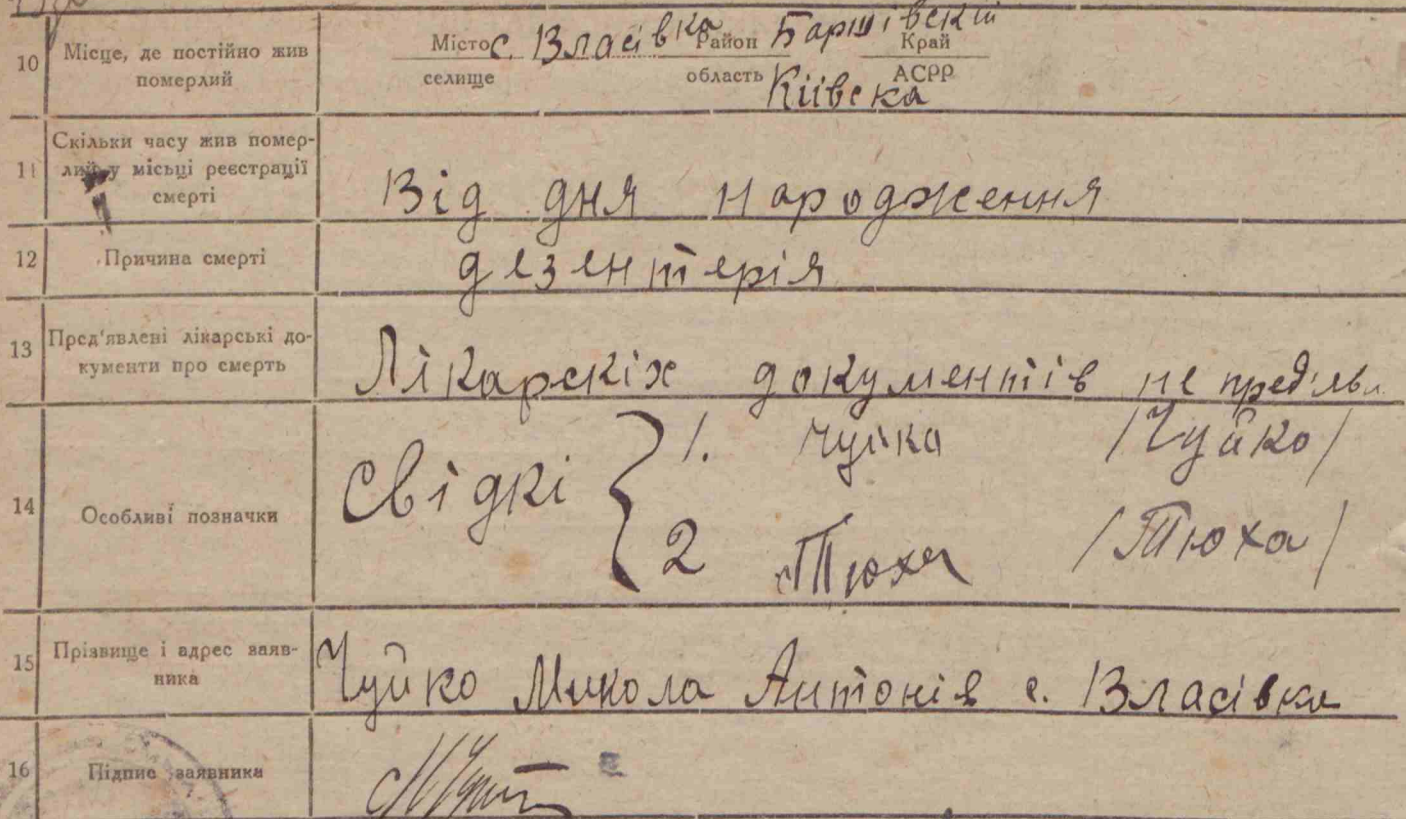 10 Місце, де постійно жив померлий Місто с. Власівка Район Баршівскій Край
селище область Кіівска АСРР
11 Скільки часу жив помер-
лий у місьці реєстрації
смерті Від дня народження
12 Причина смерті дезентерія
13 Пред'явлені лікарські до-
кументи про смерть Лікарскіх документів не пред'явл
14 Особливі позначки Свідкі { 1. Чуйко /Чуйко/
2 Тюха /Тюха/
15 Прізвище і адрес заяв-
ника Чуйко Микола Антонів с. Власівка
16 Підпис заявника